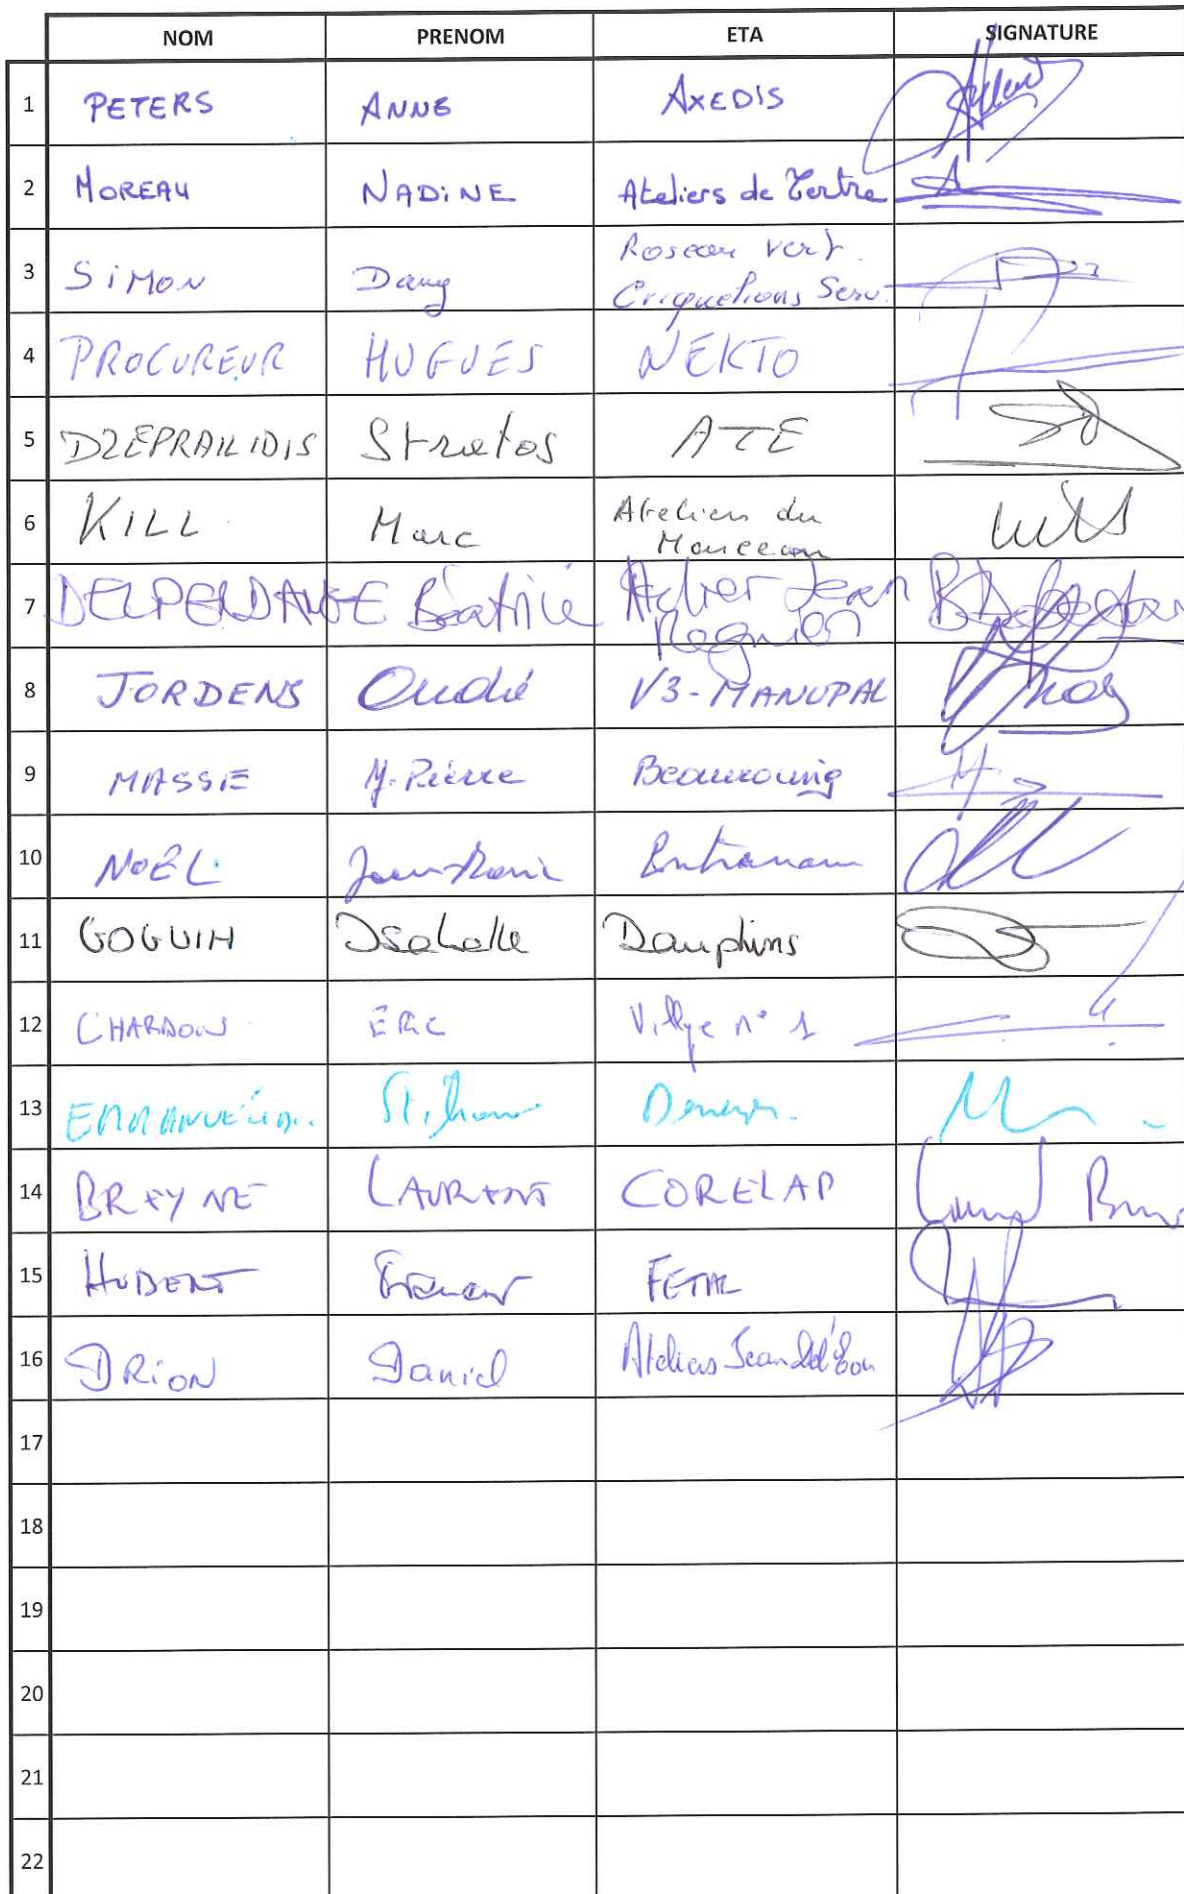 NOM PRENOM ETA SIGNATURE
1 PETERS ANNE AXEDIS
2 MOREAU NADiNE Ateliers de Tertre
3 SiMON Dany Roseau vert.
Criquelions Serv.
4 PROCUREUR HUGUES NEKTO
5 DZEPRAILIDIS Stratos ATE
6 KILL Marc Ateliers du
Monceau
7 DELPERDANGE Béatrice Atelier Jean
Regniers
8 JORDENS André V3-MANUPAL
9 MASSIE J. Pierre Beauraing
10 NOËL Jean-Marie Entranam
11 GOGUIN Isabelle Dauphins
12 CHARDON ERIC Village n° 1
13
14 BREYNE LAURENT CORELAP
15 HUBERT FETAL
16 DRiON Daniel Ateliers Jean Del'Cour
17
18
19
20
21
22